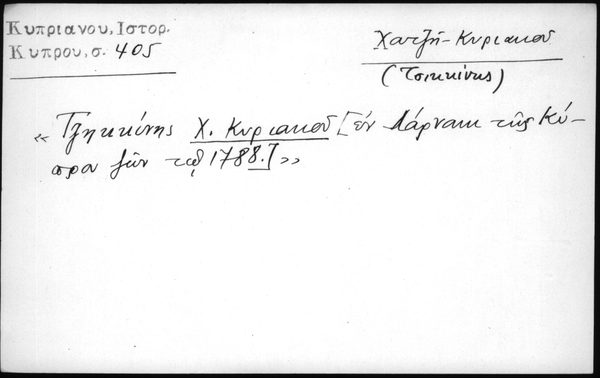 Κυπριανου, Ιστορ.
Κυπρου, σ. 405
Χατζῆ-Κυριακοῦ
(Τσικκίνης)
« Τζηκκίνης Χ. Κυριακοῦ [ἐν Λάρνακι τῆς Κύ-
πρου ζῶν τῷ 1788.] »